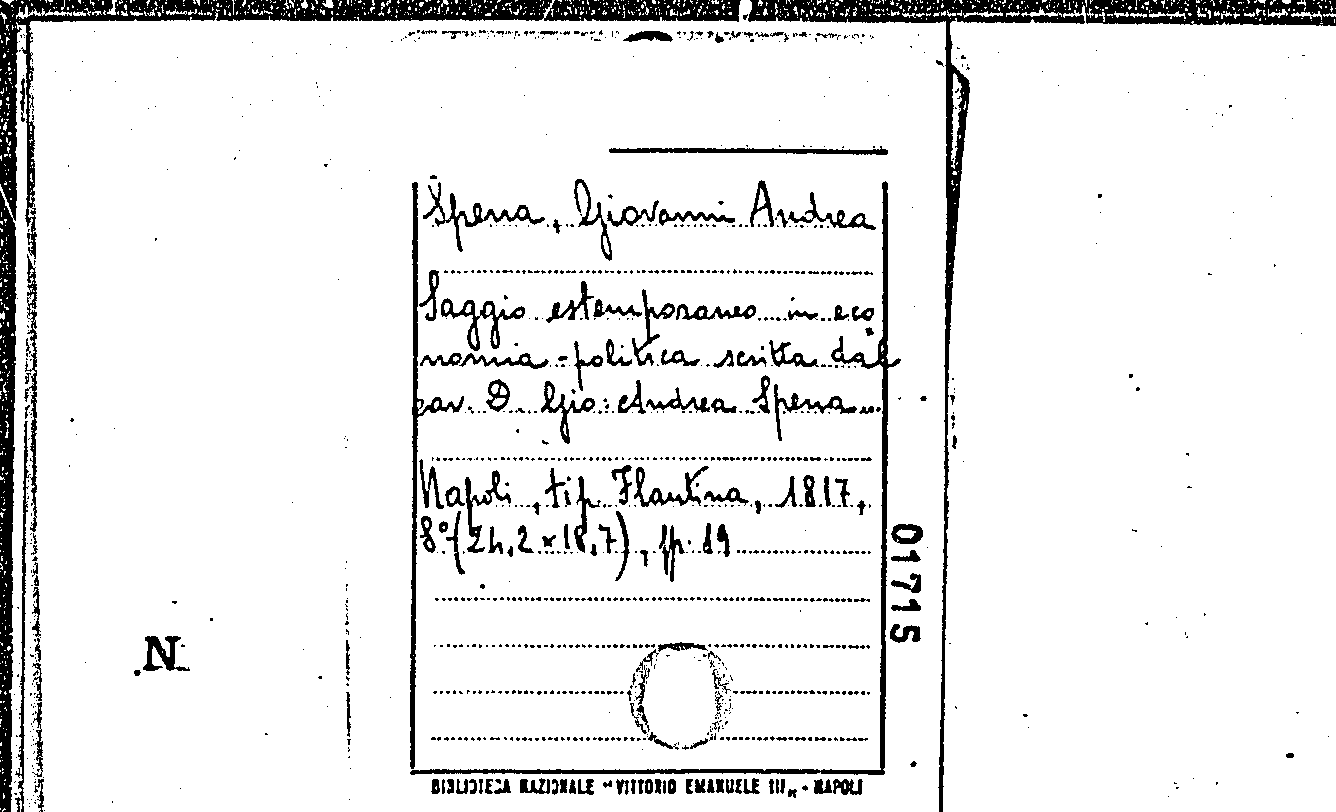 Spena, Giovanni Andrea
Saggio estemporaneo in eco
nomia-politica scritta dal
cav. D. Gio: Andrea Spena...
Napoli, tip. Flautina, 1817,
8° (24,2 × 18,7), pp. 19
01715
N
BIBLIOTECA NAZIONALE "VITTORIO EMANUELE III" - NAPOLI